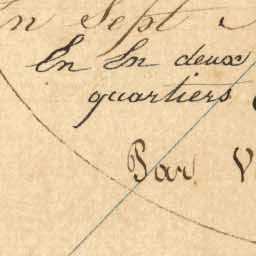 n Sept
En Ln deux
quartiers
Par V